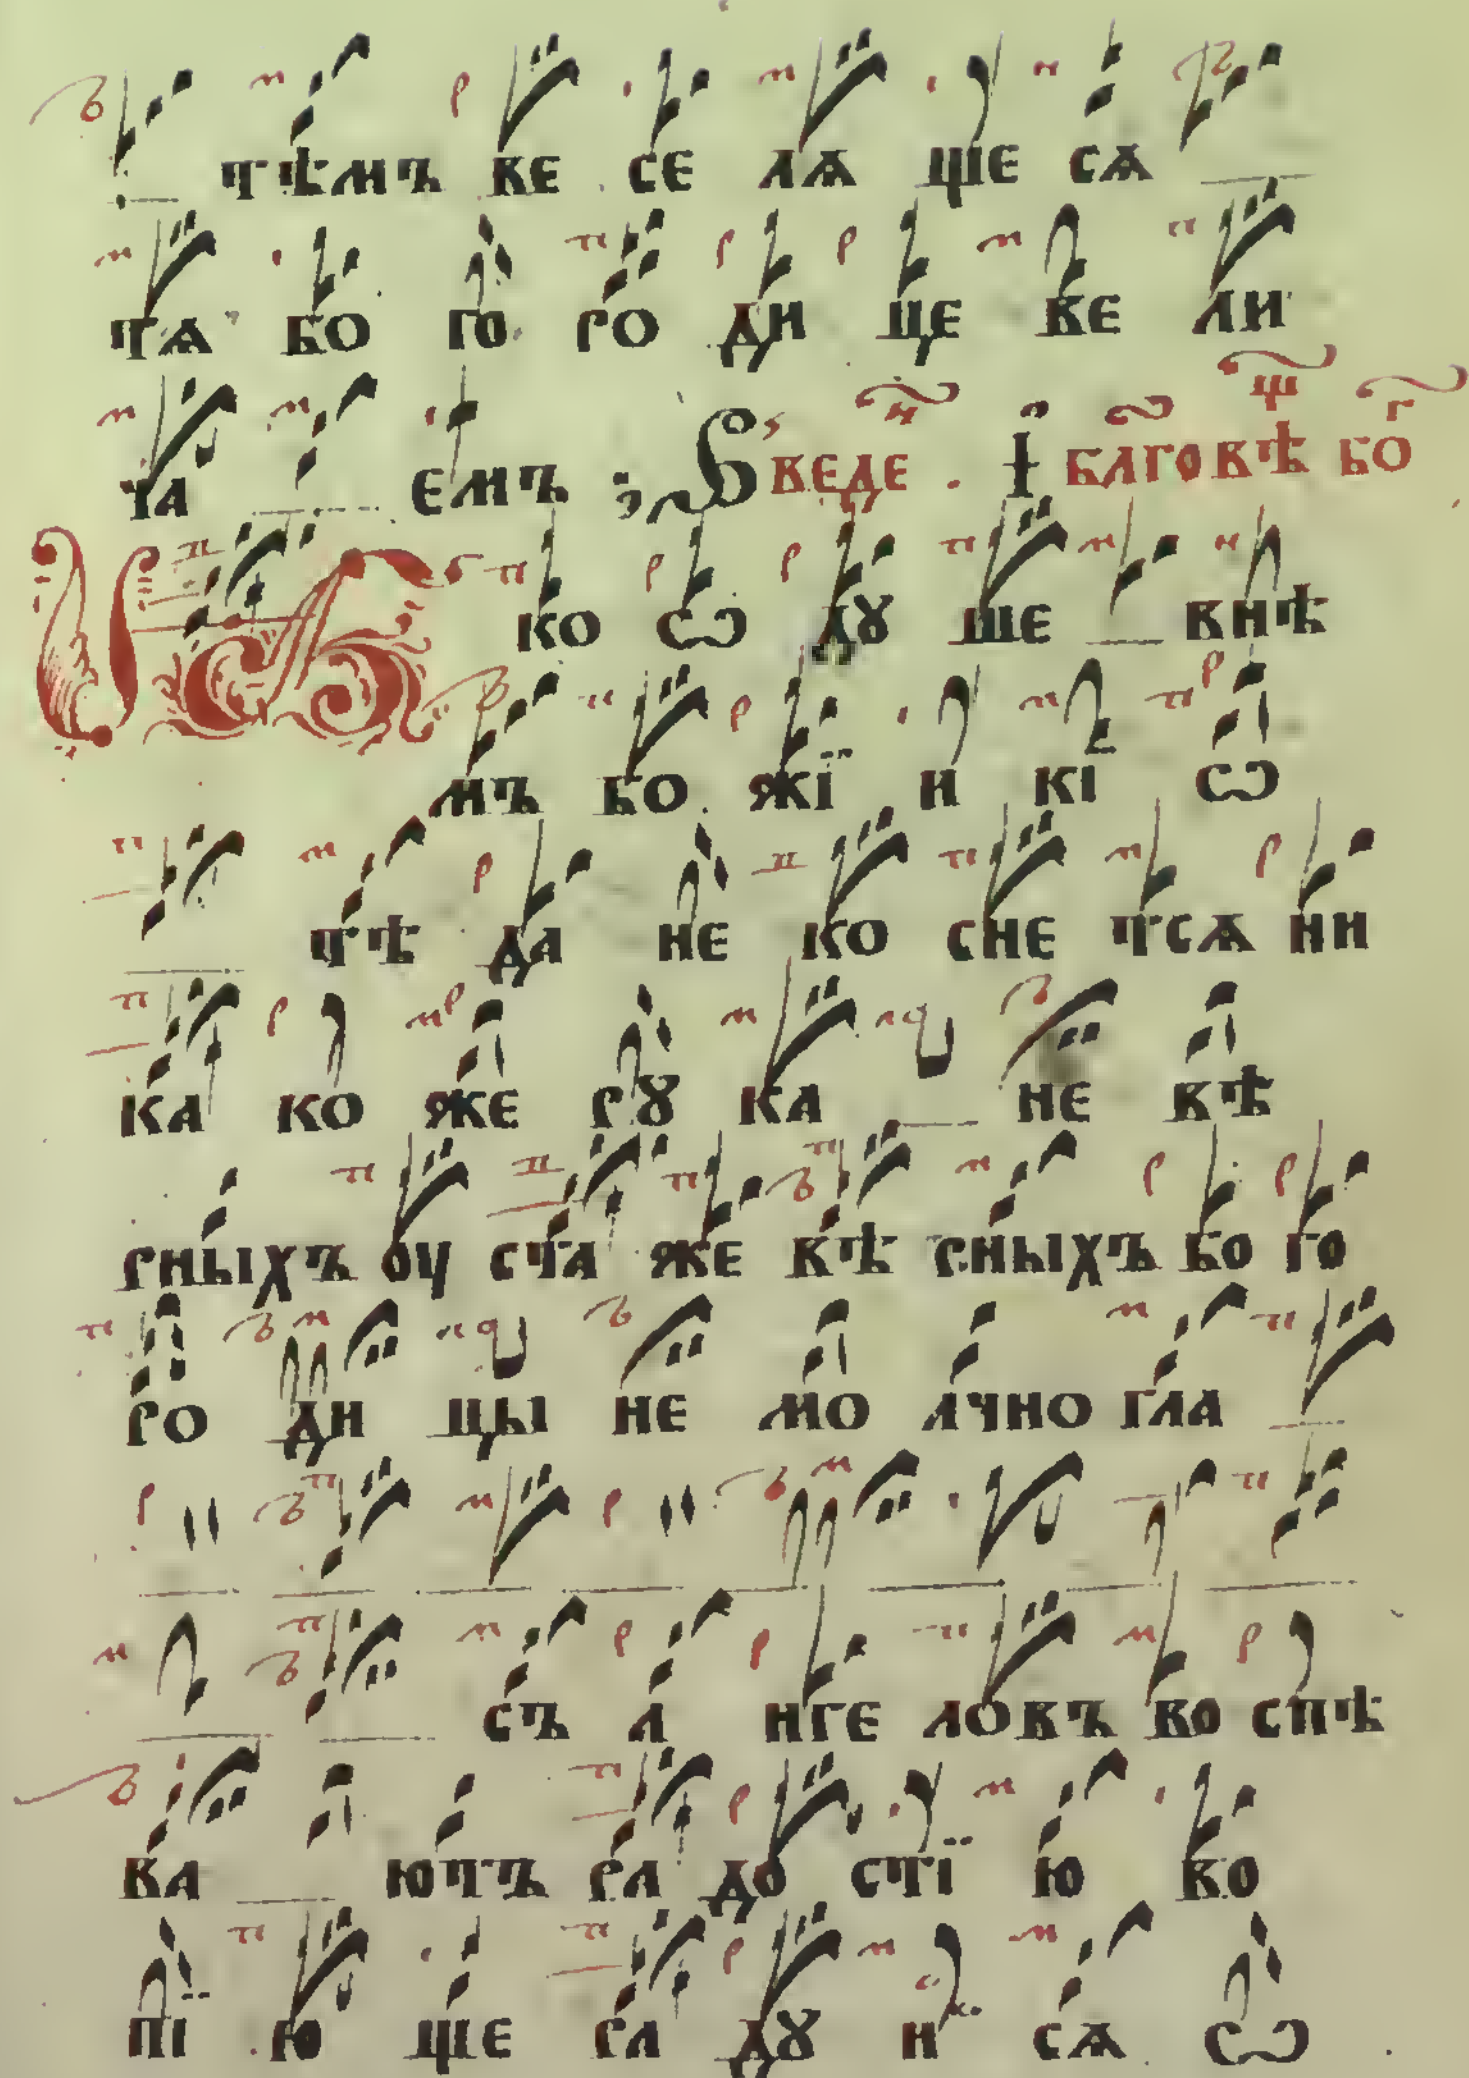 тѣмъ ве се лѧ ще сѧ
тѧ бо го ро ди це ве ли
ча емъ ; Ѕ веде . І благовѣ бо
Ꙗ ко ѡ ду ше внѣ
мъ бо жїи кі ѡ
тѣ да не ко сне тсѧ ни
ка ко же рꙋ ка не вѣ
рныхъ оу ста же вѣ рныхъ бо го
ро ди цы не мо лчно гла
съ а нге ловъ во спѣ
ва ютъ ра до стїю во
пї ю ще ра дꙋ и сѧ ѡ